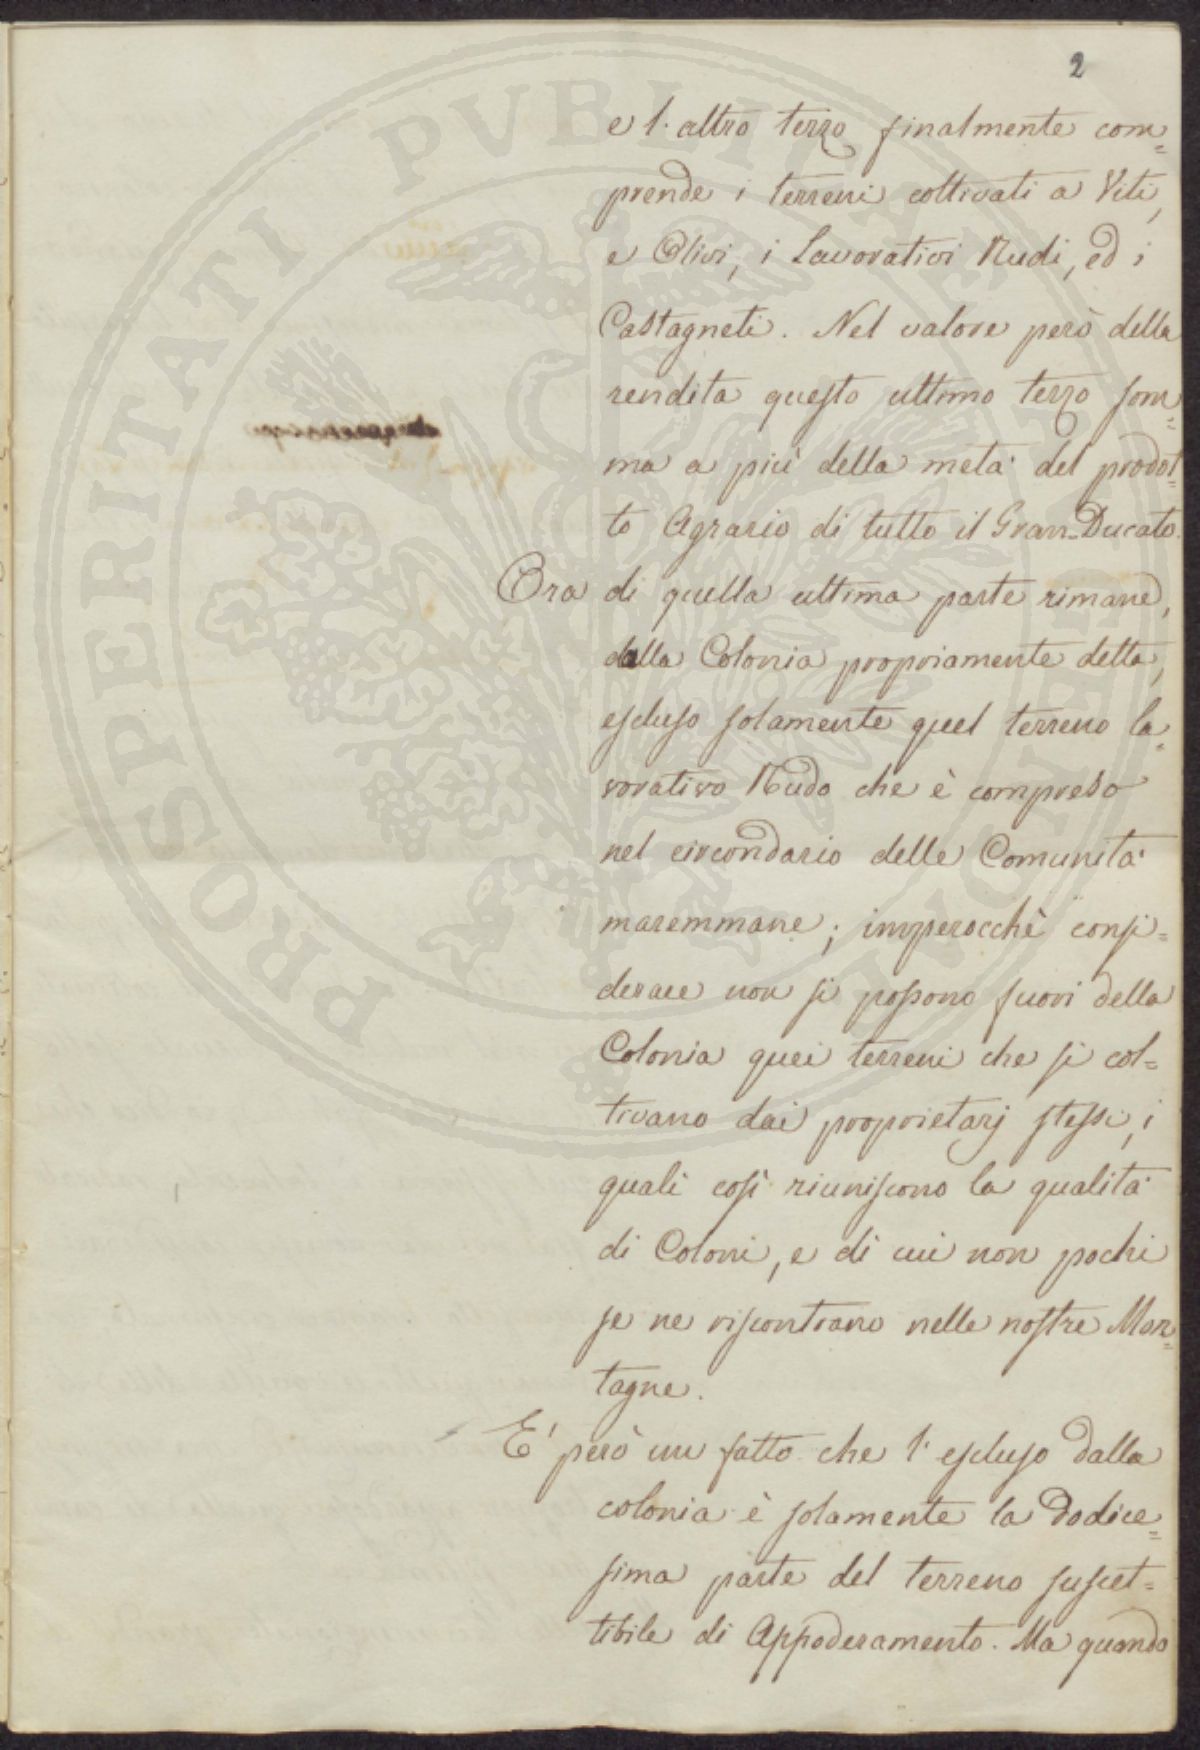 2
e l'altro terzo finalmente com=
prende i terreni coltivati a Viti,
e Olivi, i Lavorativi Nudi, ed i
Castagneti. Nel valore però della
rendita questo ultimo terzo som=
ma a più della metà del prodot=
to Agrario di tutto il Gran-Ducato.
Ora di quella ultima parte rimane,
dalla Colonia propriamente detta,
escluso solamente quel terreno la=
vorativo Nudo che è compreso
nel circondario delle Comunità
maremmane; imperocchè consi=
derare non si possono fuori della
Colonia quei terreni che si col=
tivano dai proprietarj stessi, i
quali così riuniscono la qualità
di Coloni, e di cui non pochi
se ne riscontrano nelle nostre Mon=
tagne.
E' però un fatto che l'escluso dalla
colonia è solamente la dodice=
sima parte del terreno suscet=
tibile di Appoderamento. Ma quando
PROSPERITATI PVBLICAE